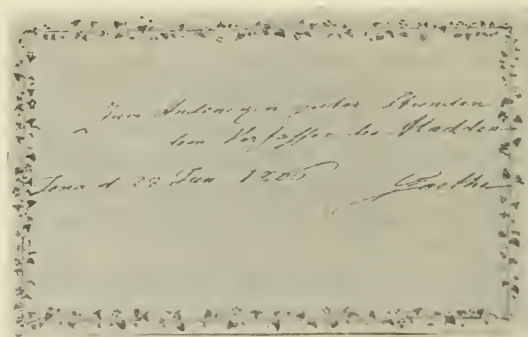 Zum Andenken guter Stunden
dem Verfasser des Aladdin
Jena d 29 Jun 1806
Goethe